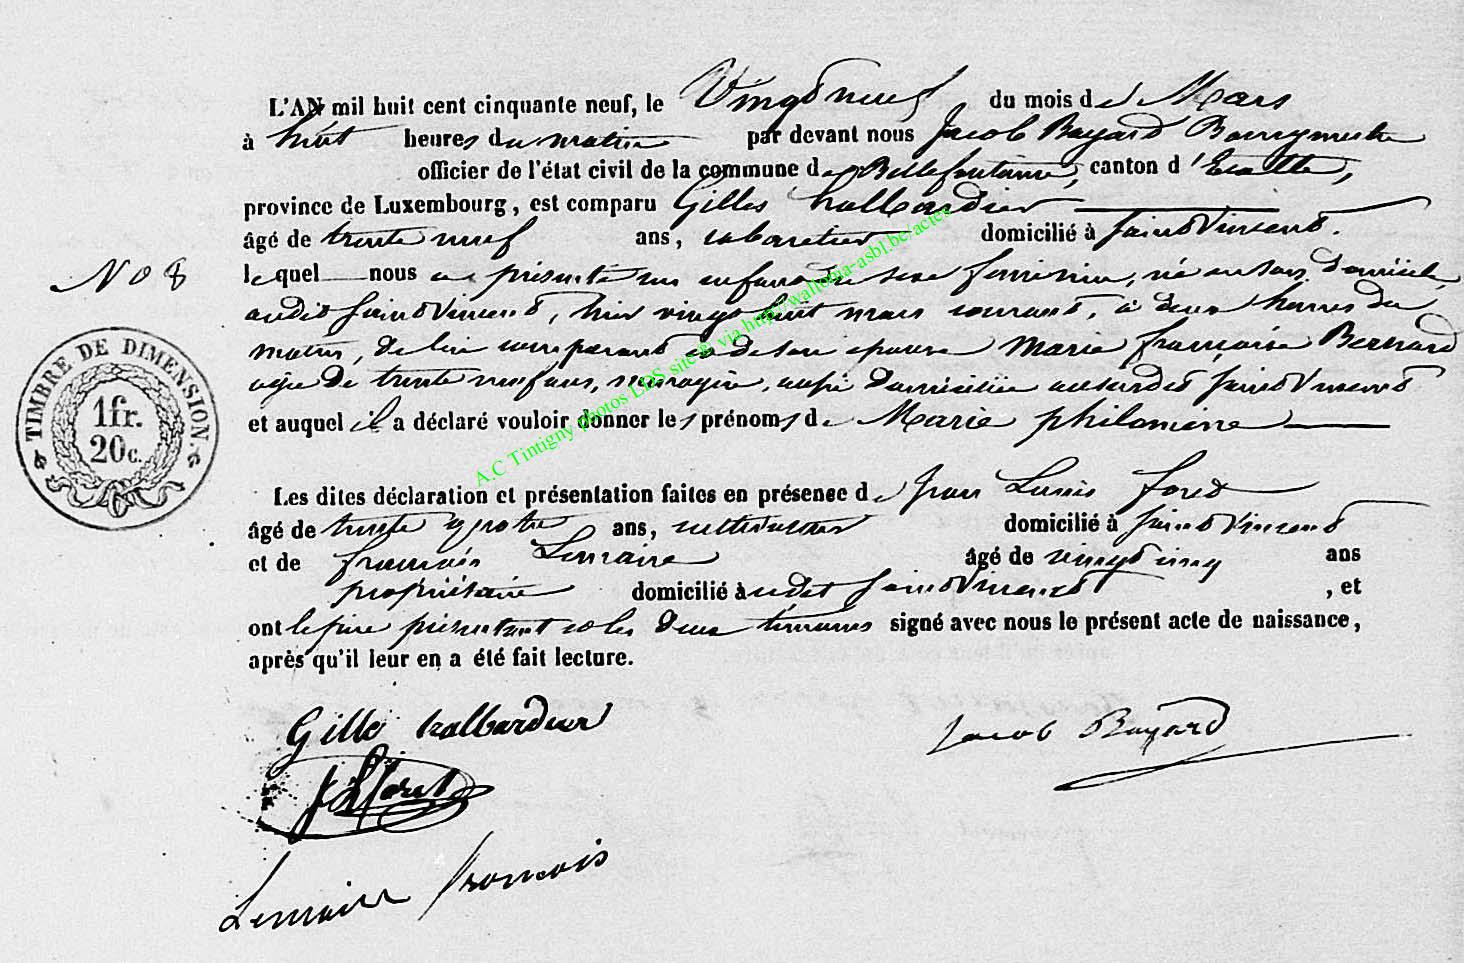 L'AN mil huit cent cinquante neuf, le Vingt neuf du mois de Mars
à huit heures du matin par devant nous Jacob Bayard Bourgmestre
officier de l'état civil de la commune de Bellefontaine, canton d'Etalle,
province de Luxembourg, est comparu Gilles halbardier
âgé de trente neuf ans, cabaretier domicilié à Saint Vincent.
No 8
lequel nous a présenté un enfant de sexe féminin, né en son domicile,
audit Saint Vincent, hier vingt huit mars courant, à deux heures du
matin, de lui comparant et de son épouse Marie françoise Bernard
agée de trente neuf ans, ménagère, aussi domiciliée audit Saint Vincent
et auquel il a déclaré vouloir donner les prénoms de Marie philomène
Les dites déclaration et présentation faites en présence de Jean Louis foret
âgé de trente quatre ans, cultivateur domicilié à Saint Vincent
et de françois Lemaire âgé de vingt cinq ans
propriétaire domicilié audit Saint Vincent, et
ont le père présentant et les deux témoins signé avec nous le présent acte de naissance,
après qu'il leur en a été fait lecture.
Gille halbardier
Jacob Bayard
J L foret
Lemaire françois
TIMBRE DE DIMENSION.
1fr.
20c.
A.C Tintigny photos LDS site & via http://wallonia-asbl.be/actes